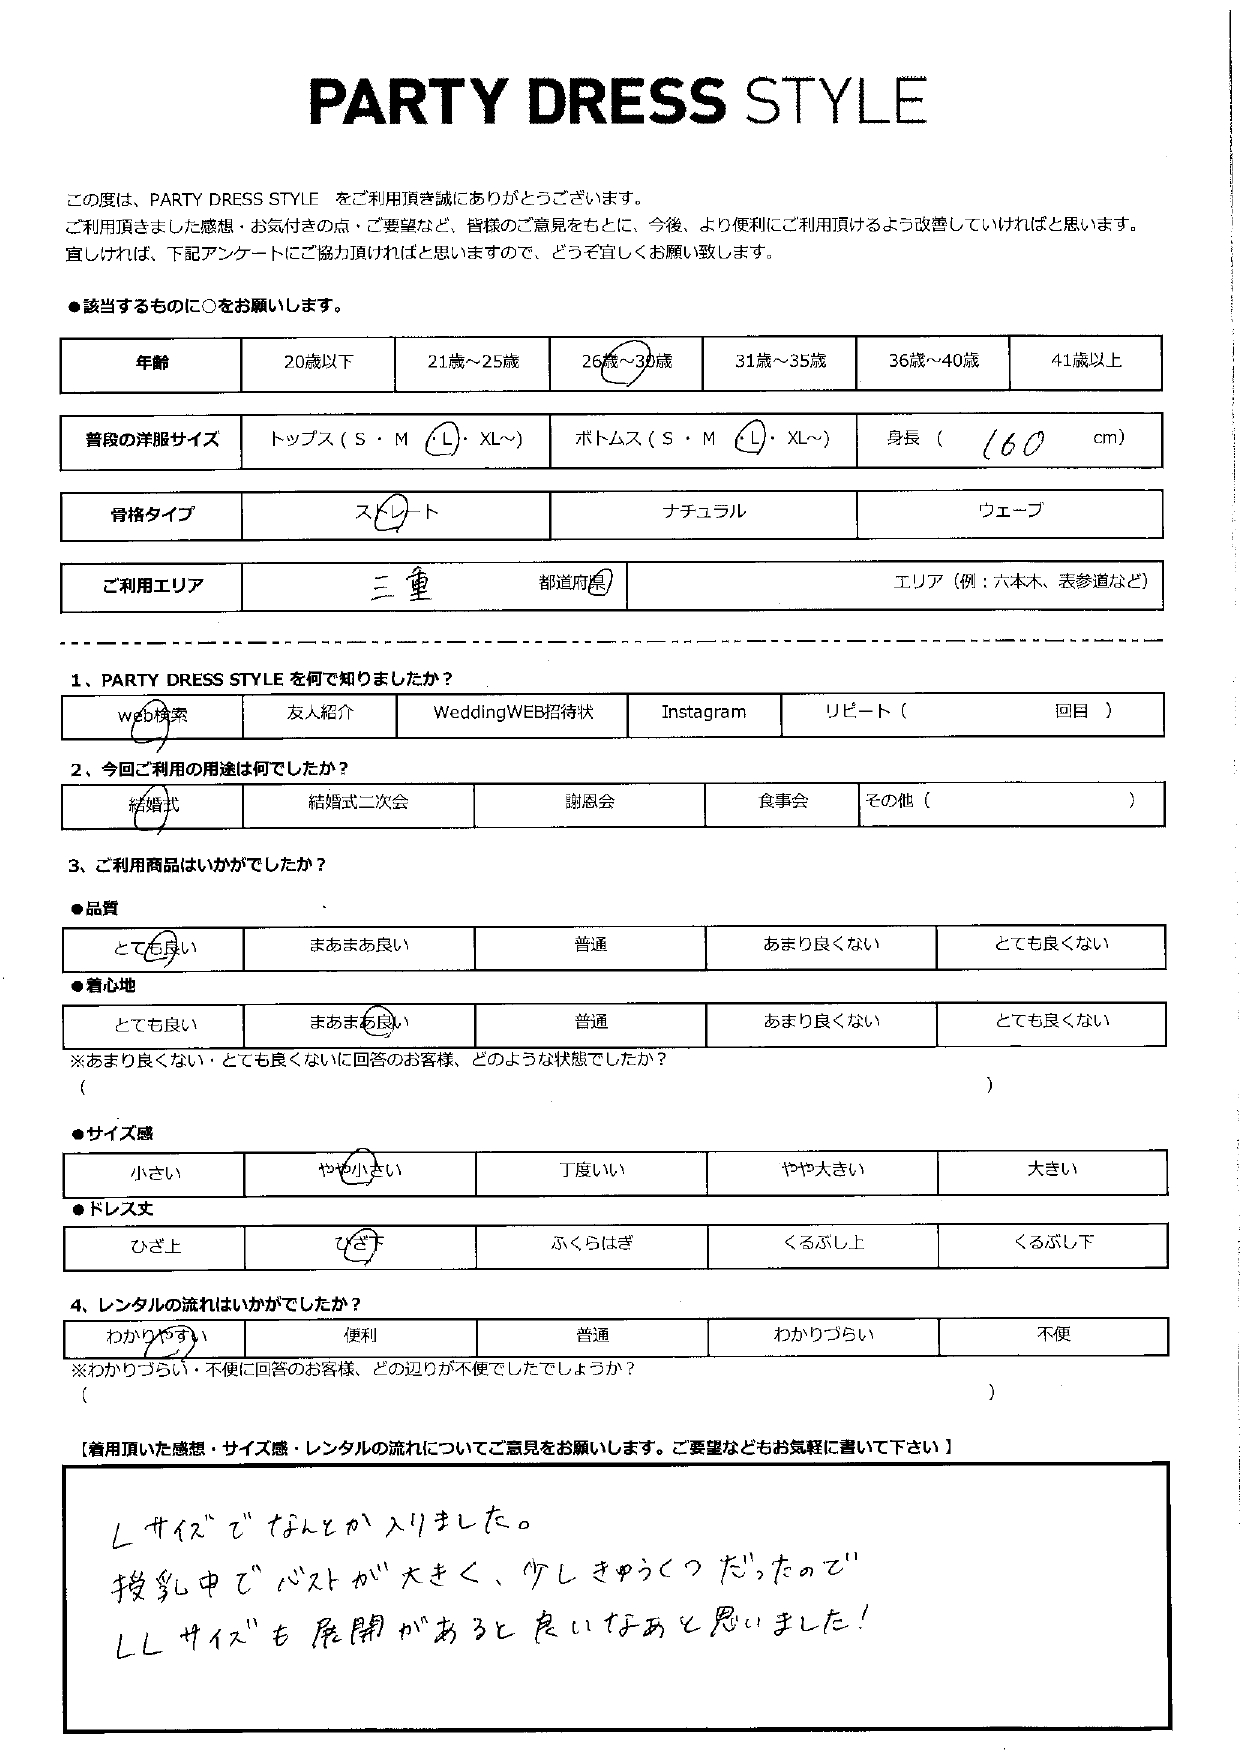 PARTY DRESS STYLE
この度は、PARTY DRESS STYLE をご利用頂き誠にありがとうございます。
ご利用頂きました感想・お気付きの点・ご要望など、皆様のご意見をもとに、今後、より便利にご利用頂けるよう改善していければと思います。
宜しければ、下記アンケートにご協力頂ければと思いますので、どうぞ宜しくお願い致します。
●該当するものに○をお願いします。
年齢 20歳以下 21歳～25歳 26歳～30歳 31歳～35歳 36歳～40歳 41歳以上
普段の洋服サイズ トップス ( S ・ M ・L・ XL～) ボトムス ( S ・ M ・L・ XL～) 身長 ( 160 cm)
骨格タイプ ストレート ナチュラル ウェーブ
ご利用エリア 三重 都道府県 エリア（例：六本木、表参道など）
1、PARTY DRESS STYLE を何で知りましたか？
web検索 友人紹介 WeddingWEB招待状 Instagram リピート（ 回目 ）
2、今回ご利用の用途は何でしたか？
結婚式 結婚式二次会 謝恩会 食事会 その他（ ）
3、ご利用商品はいかがでしたか？
●品質
とても良い まあまあ良い 普通 あまり良くない とても良くない
●着心地
とても良い まあまあ良い 普通 あまり良くない とても良くない
※あまり良くない・とても良くないに回答のお客様、どのような状態でしたか？
( )
●サイズ感
小さい やや小さい 丁度いい やや大きい 大きい
●ドレス丈
ひざ上 ひざ下 ふくらはぎ くるぶし上 くるぶし下
4、レンタルの流れはいかがでしたか？
わかりやすい 便利 普通 わかりづらい 不便
※わかりづらい・不便に回答のお客様、どの辺りが不便でしたでしょうか？
( )
【着用頂いた感想・サイズ感・レンタルの流れについてご意見をお願いします。ご要望などもお気軽に書いて下さい 】
Lサイズでなんとか入りました。
授乳中でバストが大きく、少しきゅうくつだったので
LLサイズも展開があると良いなぁと思いました！